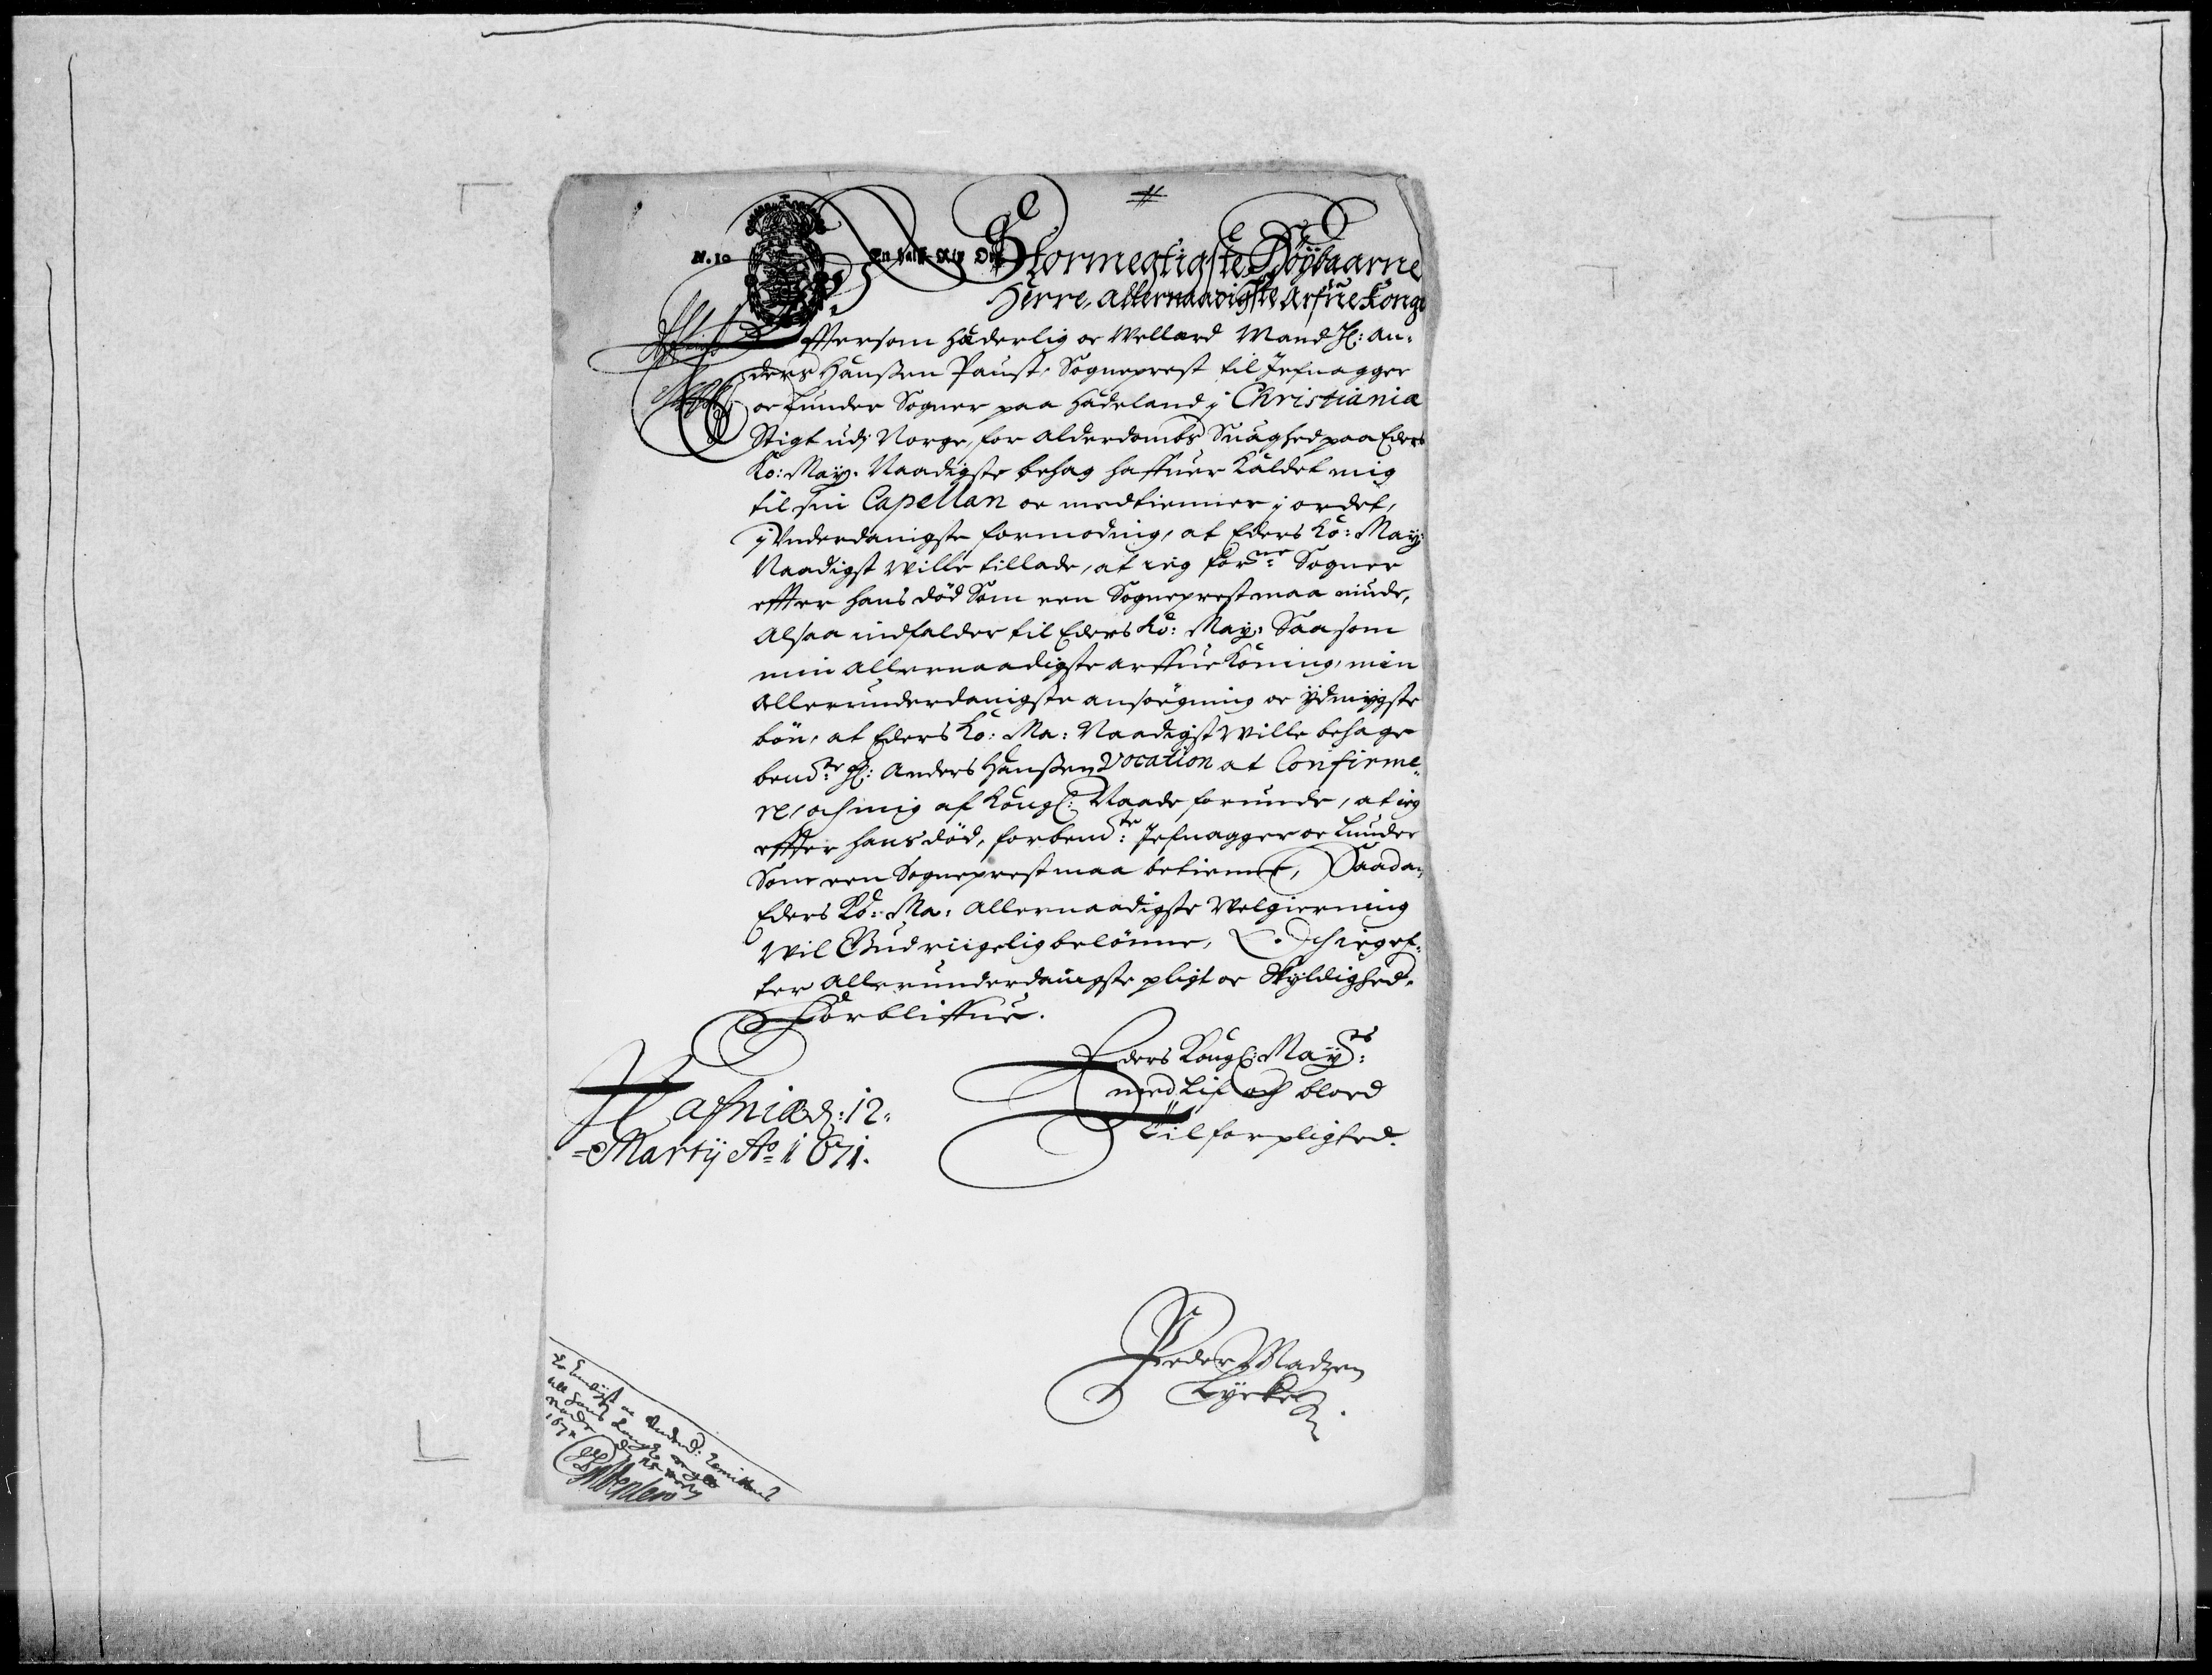 N. 10
Stormegtigste Höÿbaarne
Herre, Allernaadigste Arfue Konge
Effersom Hæderlig oc Wellærd Mand Hl: An-
ders Hanssen Paust, Sogneprest til Jefnagger
oc Lunder Sogner paa Hadeland j Christiania
Stigt udj Norge, for Alderdombs Suaghed paa Eders
Ko: May: Naadigste behag haffuer Kaldet mig
til sin Capellan oc medtienner j ordet,
j Underdanigste formoding, at Eders Ko: May:
Naadigst wille tillade, at ieg forne: Sogner
effter hans död Som een Sogneprest maa niude,
Alsaa indfalder til Eders Ko: May: Saasom
min Allernaadigste arffue Köning, min
Allerunderdanigste ansöegning oc ÿdmÿgste
bön, at Eders Ko: Ma: Naadigst wille behage
bemdte: Hl: Anders Hanssen Vocation at Confirme-
re, och mig af Kongl: Naade forunde, at ieg
effter hans död, forbemdte: Jefnagger oc Lunder
Som een Sogneprest maa betienne, Saadan
Eders Ko: Ma: Allernaadigste Velgierning
wil Gud riigelig belönne, Och ieg ef-
ter Allerunderdanigste pligt oc Skyldighed.
Forbliffue.
Eders Kongl: Mayts:
med Lif och bloed
Tilforpligted.
Hafniæ d: 12.
Martij Ao 1671.
Peder Madzen
Lÿcke